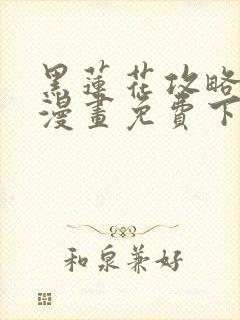 黑蓮花攻略
漫畫免費下
和泉兼好